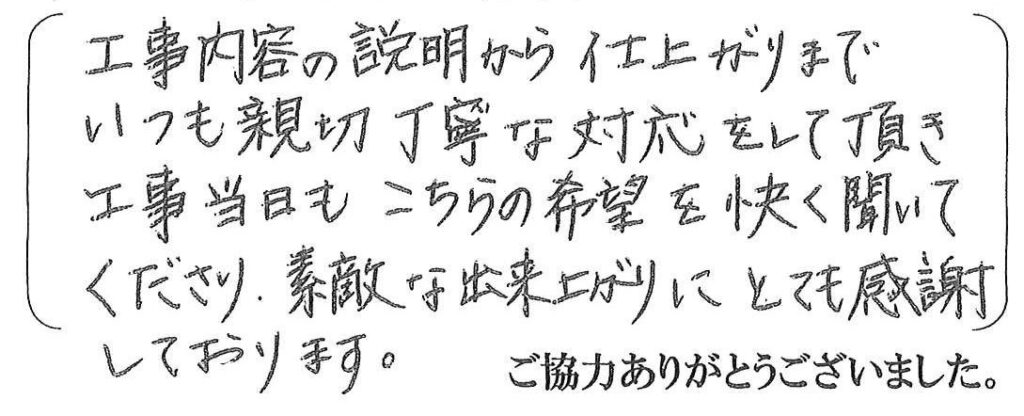 工事内容の説明から仕上がりまで
いつも親切丁寧な対応をして頂き
工事当日もこちらの希望を快く聞いて
くださり、素敵な出来上がりにとても感謝
しております。
ご協力ありがとうございました。